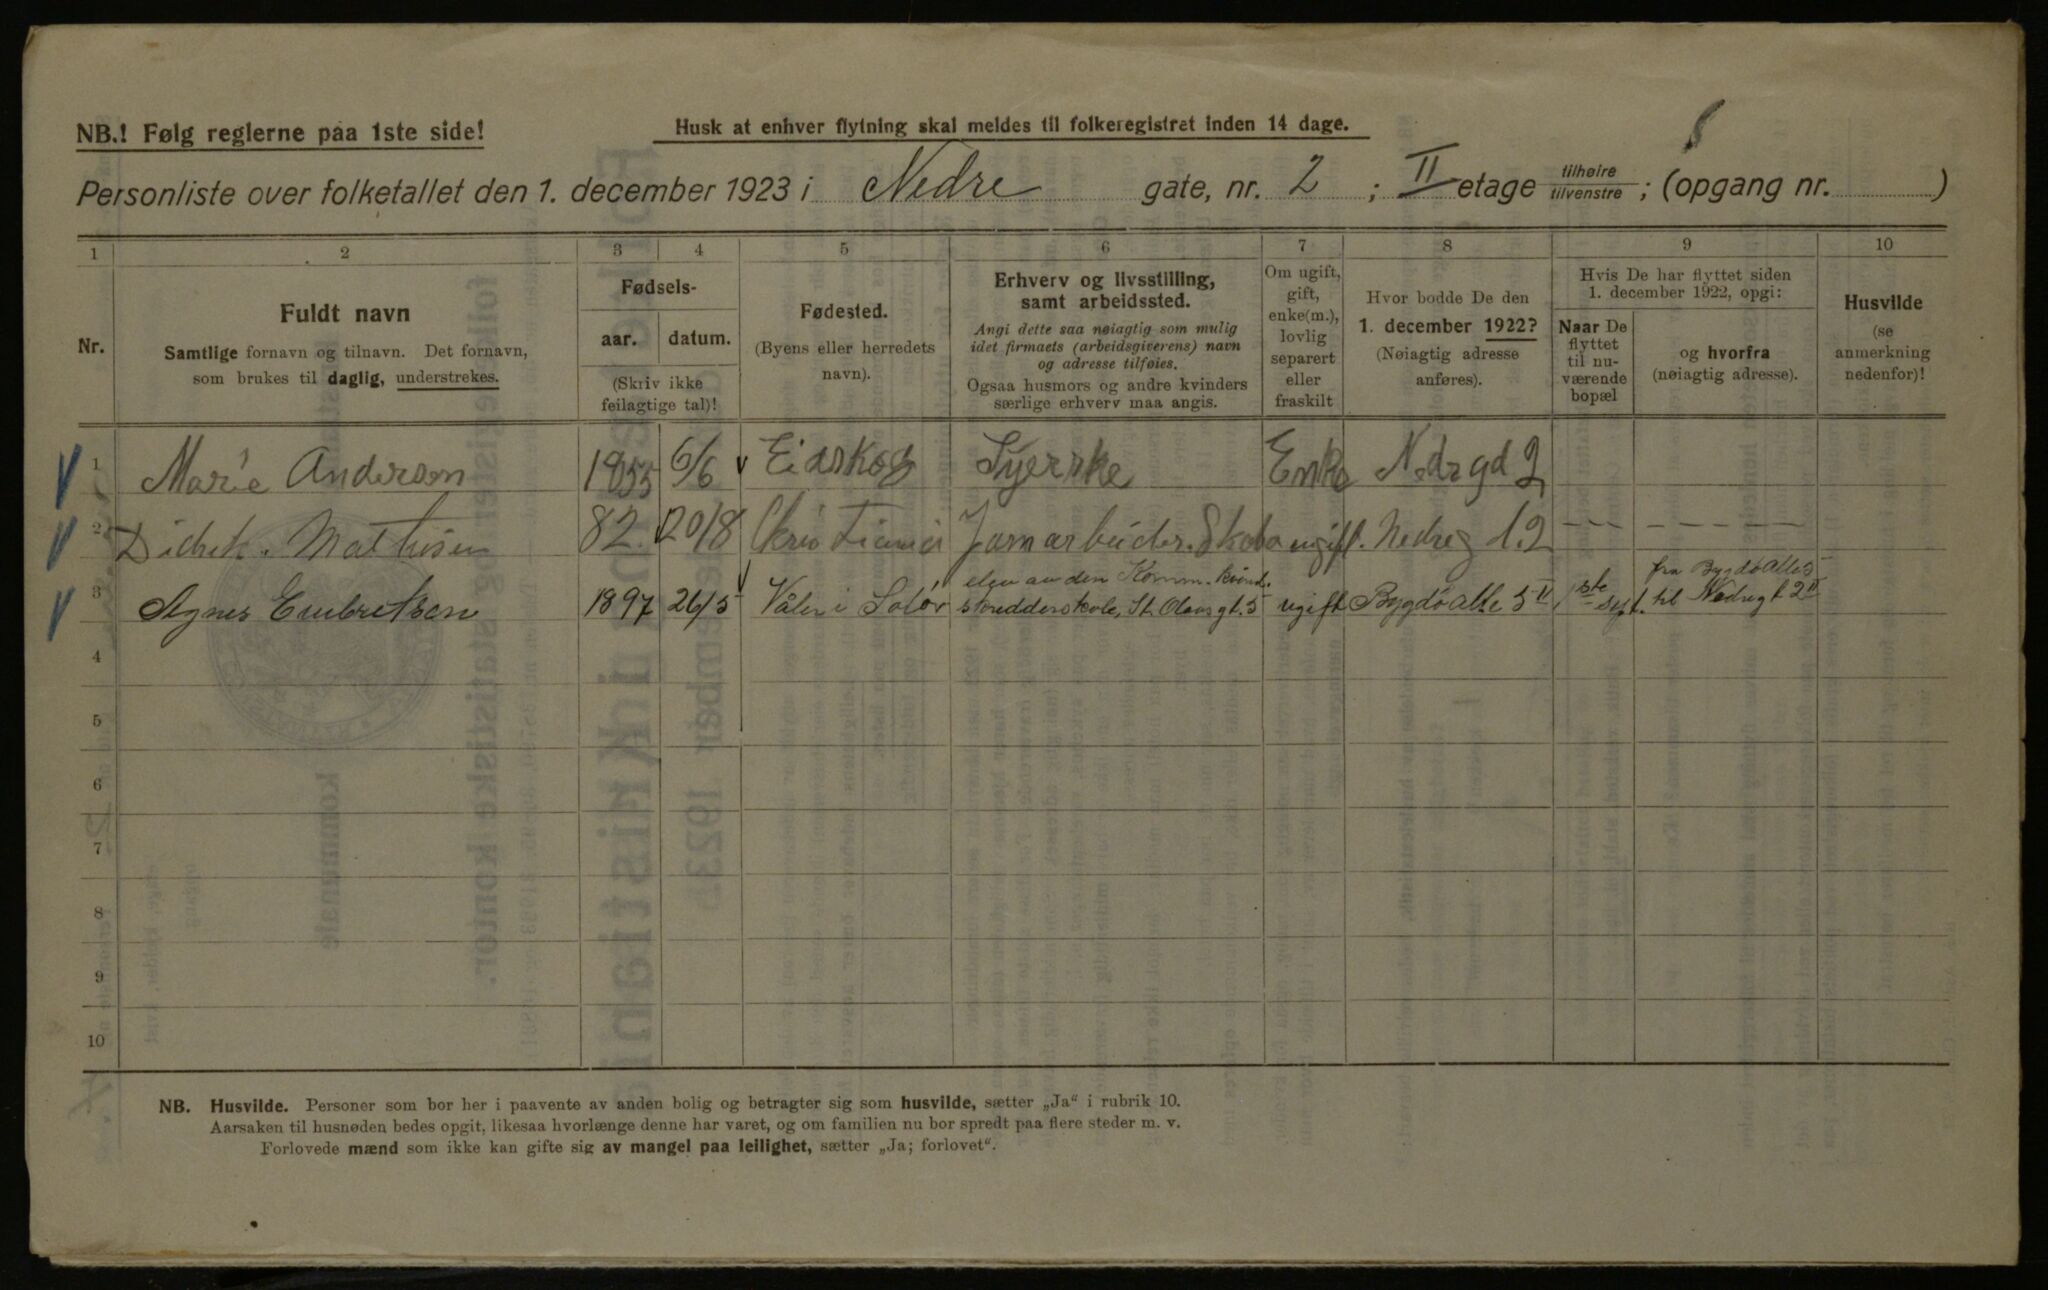 NB.! Følg reglerne paa 1ste side!
Husk at enhver flytning skal meldes til folkeregistret inden 14 dage.
Personliste over folketallet den 1. december 1923 i Nedre gate, nr. 2 ; II etage tilhøire tilvenstre ; (opgang nr. )
1 2 3 4 5 6 7 8 9 10
Nr.
Fuldt navn
Samtlige fornavn og tilnavn. Det fornavn,
som brukes til daglig, understrekes.
Fødsels-
aar. datum.
(Skriv ikke
feilagtige tal)!
Fødested.
(Byens eller herredets
navn).
Erhverv og livsstilling,
samt arbeidssted.
Angi dette saa nøiagtig som mulig
idet firmaets (arbeidsgiverens) navn
og adresse tilføies.
Ogsaa husmors og andre kvinders
særlige erhverv maa angis.
Om ugift,
gift,
enke(m.),
lovlig
separert
eller
fraskilt
Hvor bodde De den
1. december 1922?
(Nøiagtig adresse
anføres).
Hvis De har flyttet siden
1. december 1922, opgi:
Naar De
flyttet
til nu-
værende
bopæl
og hvorfra
(nøiagtig adresse).
Husvilde
(se
anmerkning
nedenfor)!
1 Marie Anderson 1855 6/6 Eidskog Syerske Enke Nedregd 2
2 Didrik Mathisen 82 20/8 Kristiania Jarnarbeider ugift. Nedreg d. 2
elev av den Komm. kvind. fra Bygdø Alle 5
3 Agnes Embretsen 1897 26/5 Våler i Solør skredderskole, St. Olavsgt. 5 ugift Bygdø Alle 5 II 1ste sept. til Nedregt 2 II
4
5
6
7
8
9
10
NB. Husvilde. Personer som bor her i paavente av anden bolig og betragter sig som husvilde, sætter „Ja“ i rubrik 10.
Aarsaken til husnøden bedes opgit, likesaa hvorlænge denne har varet, og om familien nu bor spredt paa flere steder m. v.
Forlovede mænd som ikke kan gifte sig av mangel paa leilighet, sætter „Ja; forlovet“.